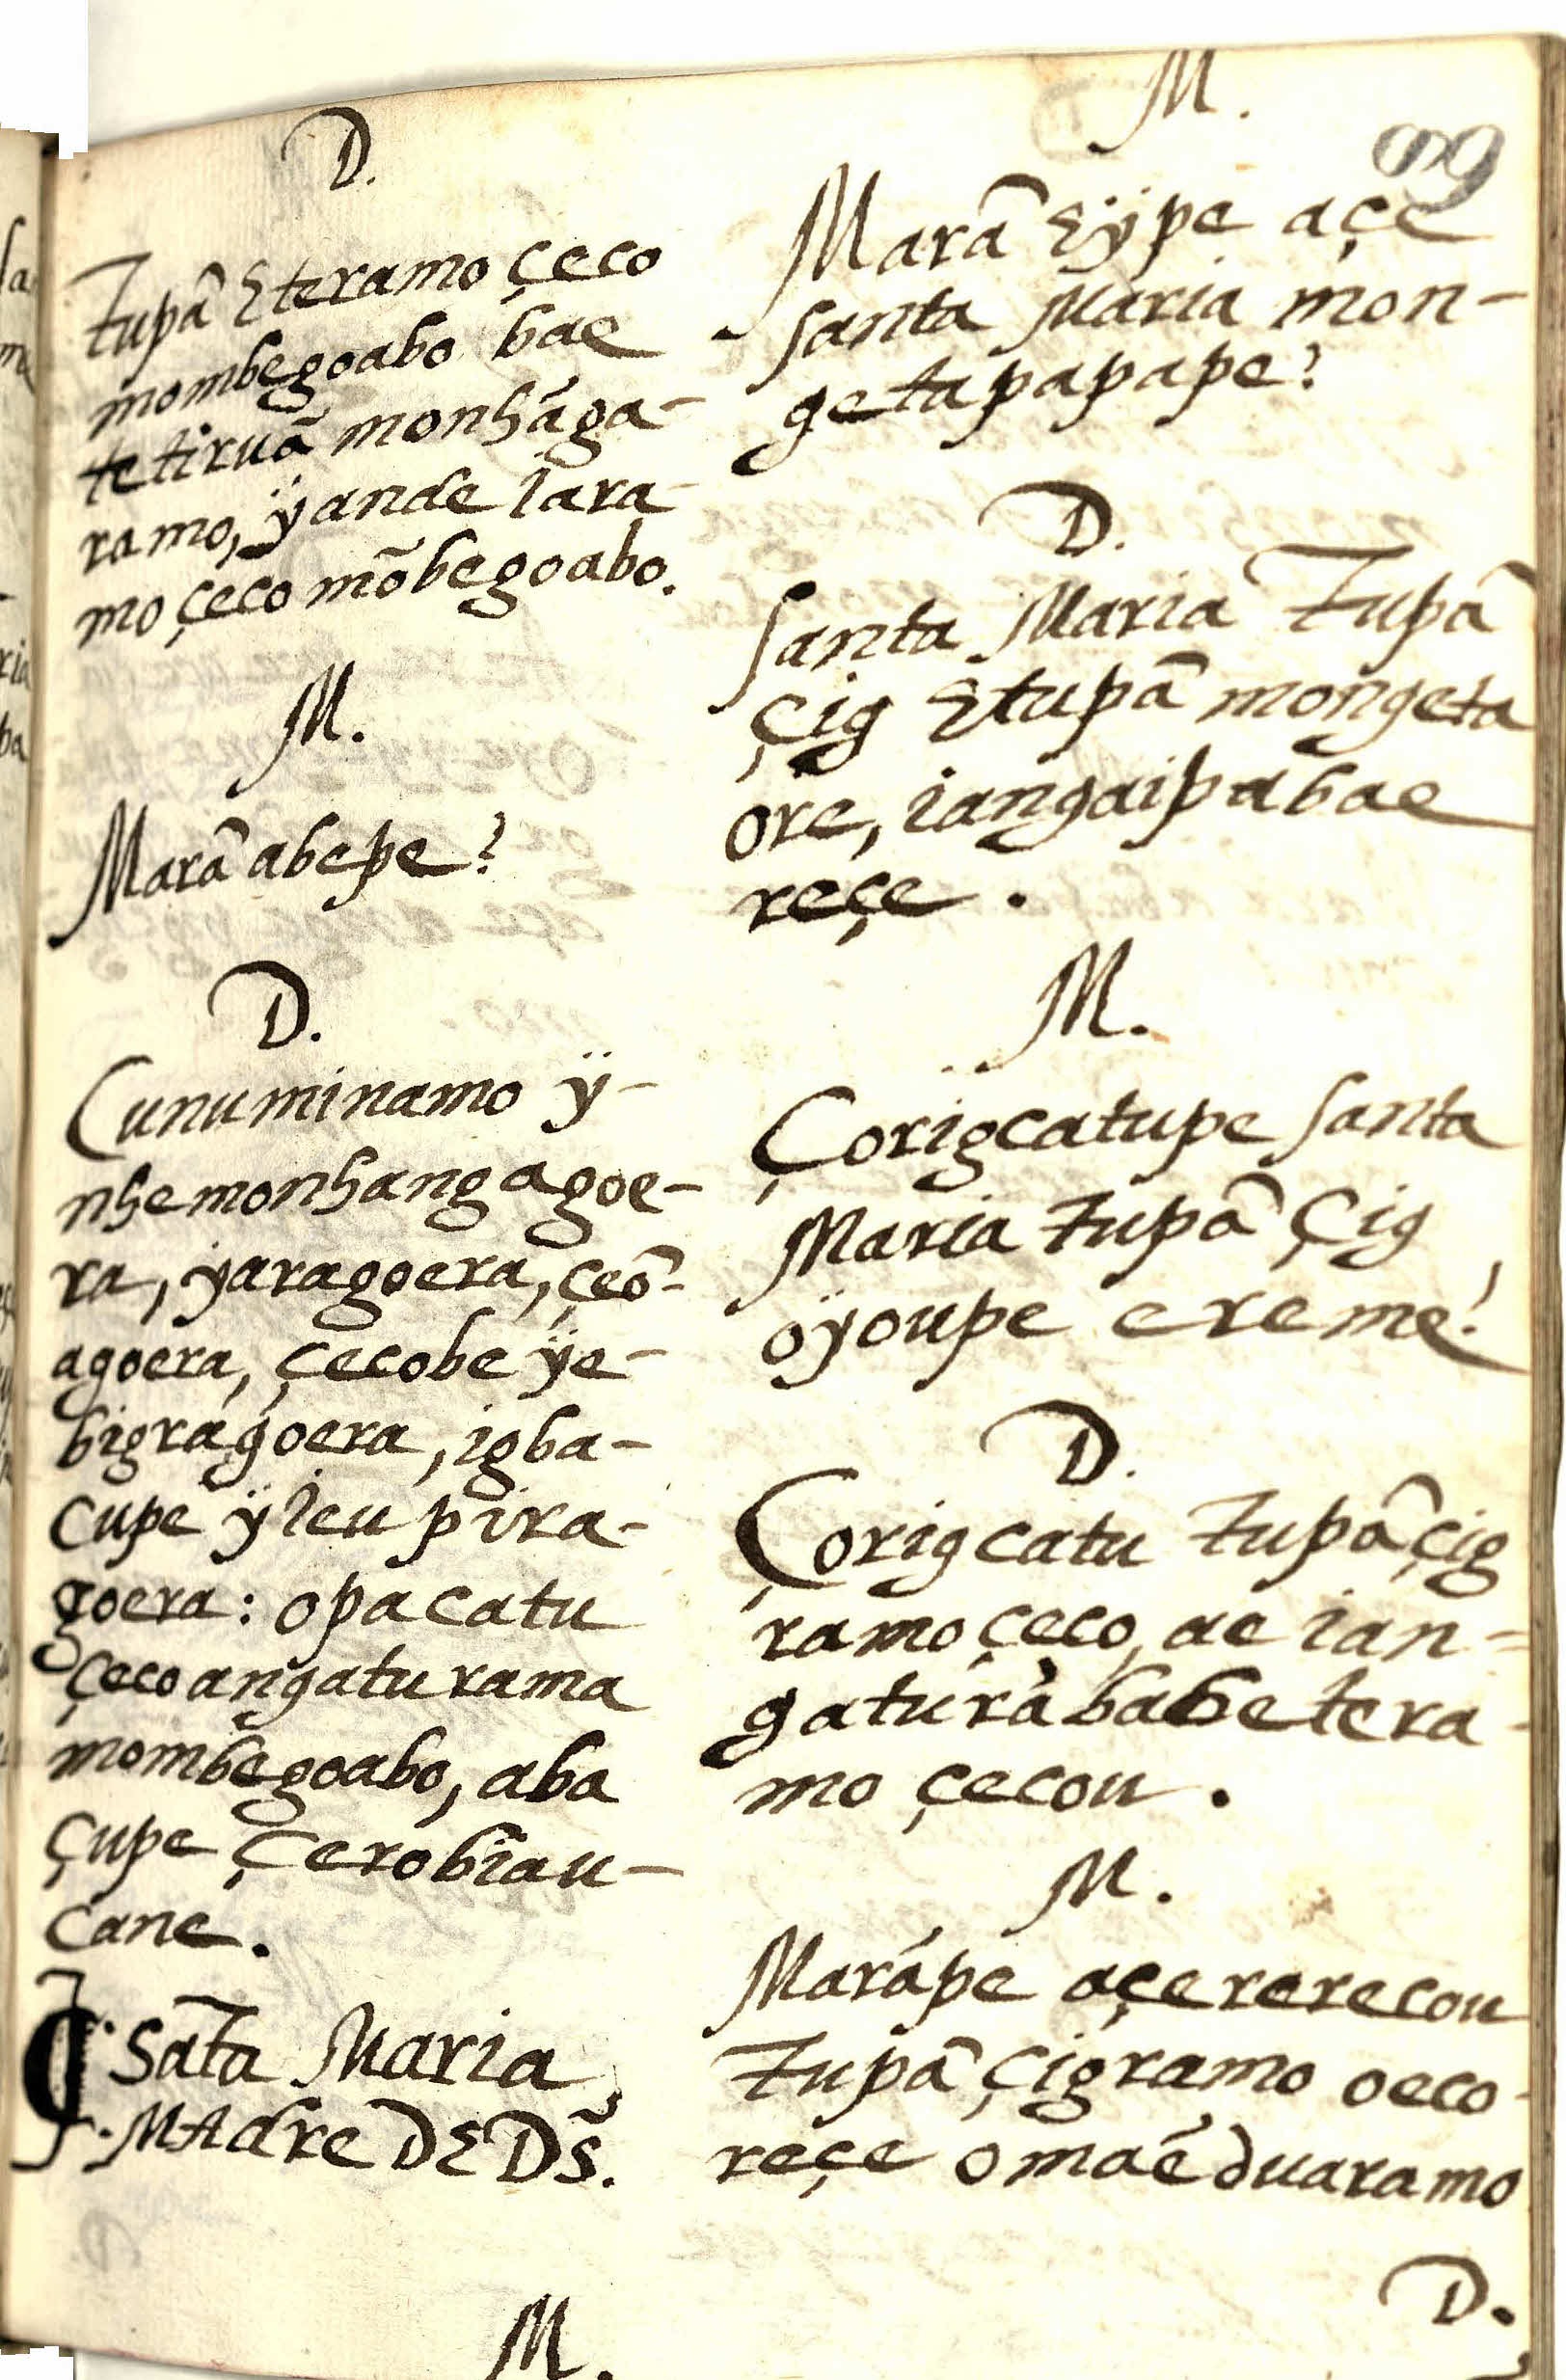 D.
Tupã Eteramo çeco
mombegoabo bae
tetiruã monhãga-
ramo, ÿande iara-
mo çeco mõbegoabo.
M.
Marã abepe?
D.
Cunuminamo ÿ-
nhemonhangagoe-
ra, ÿaragoera, çeõ-
agoera, çecobe ÿe-
bigrágoera, igba-
cupe ÿieupira-
goera: opacatu
çecoangaturama
mombegoabo, aba
çupe çerobiau-
cane.
Sãta Maria,
MAdre DE Ds̃.
M.
M.
69
Marã Eÿpe açe
santa Maria mon-
getapapape?
D.
Santa Maria Tupã
çig Etupã mongeta
ore, iangaipabae
reçe.
M.
Çorigcatupe santa
Maria Tupã çig
oÿoupe ereme?
D.
Çorigcatu Tupã çig
ramo çeco, ae ian-
gaturàbabetera-
mo çecou.
M.
Marápe açererecou
Tupã çigramo oeco-
reçe omaéduaramo
D.